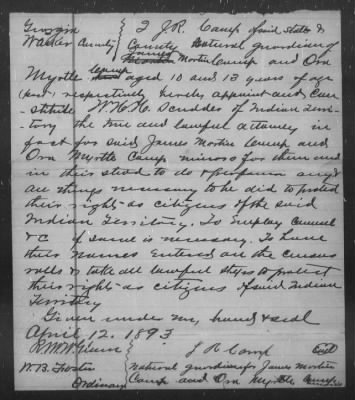 Georgia
Walker County
I J.R. Camp of said state &
County natural guardian of
James Mortin Camp and Ora
Myrtle Camp aged 10 and 13 years of age
respectively hereby appoint and con
stitute W.H.H. Scudder of Indian Terri-
tory the true and lawful attorney in
fact for said James Mortin Camp and
Ora Myrtle Camp minors for them and
in their stead to do & perform any &
all things necessary to be did to protect
their rights as citizens of the said
Indian Territory. To Employ Counsel
&C if same is necessary. To have
their names Entered on the census
rolls & take all lawful steps to protect
their rights as citizens of said Indian
Territory
Given under my hand & seal
April 12. 1893
J R Camp
W.B. Foster
Ordinary
natural guardian for James Mortin
Camp and Ora Myrtle Camp